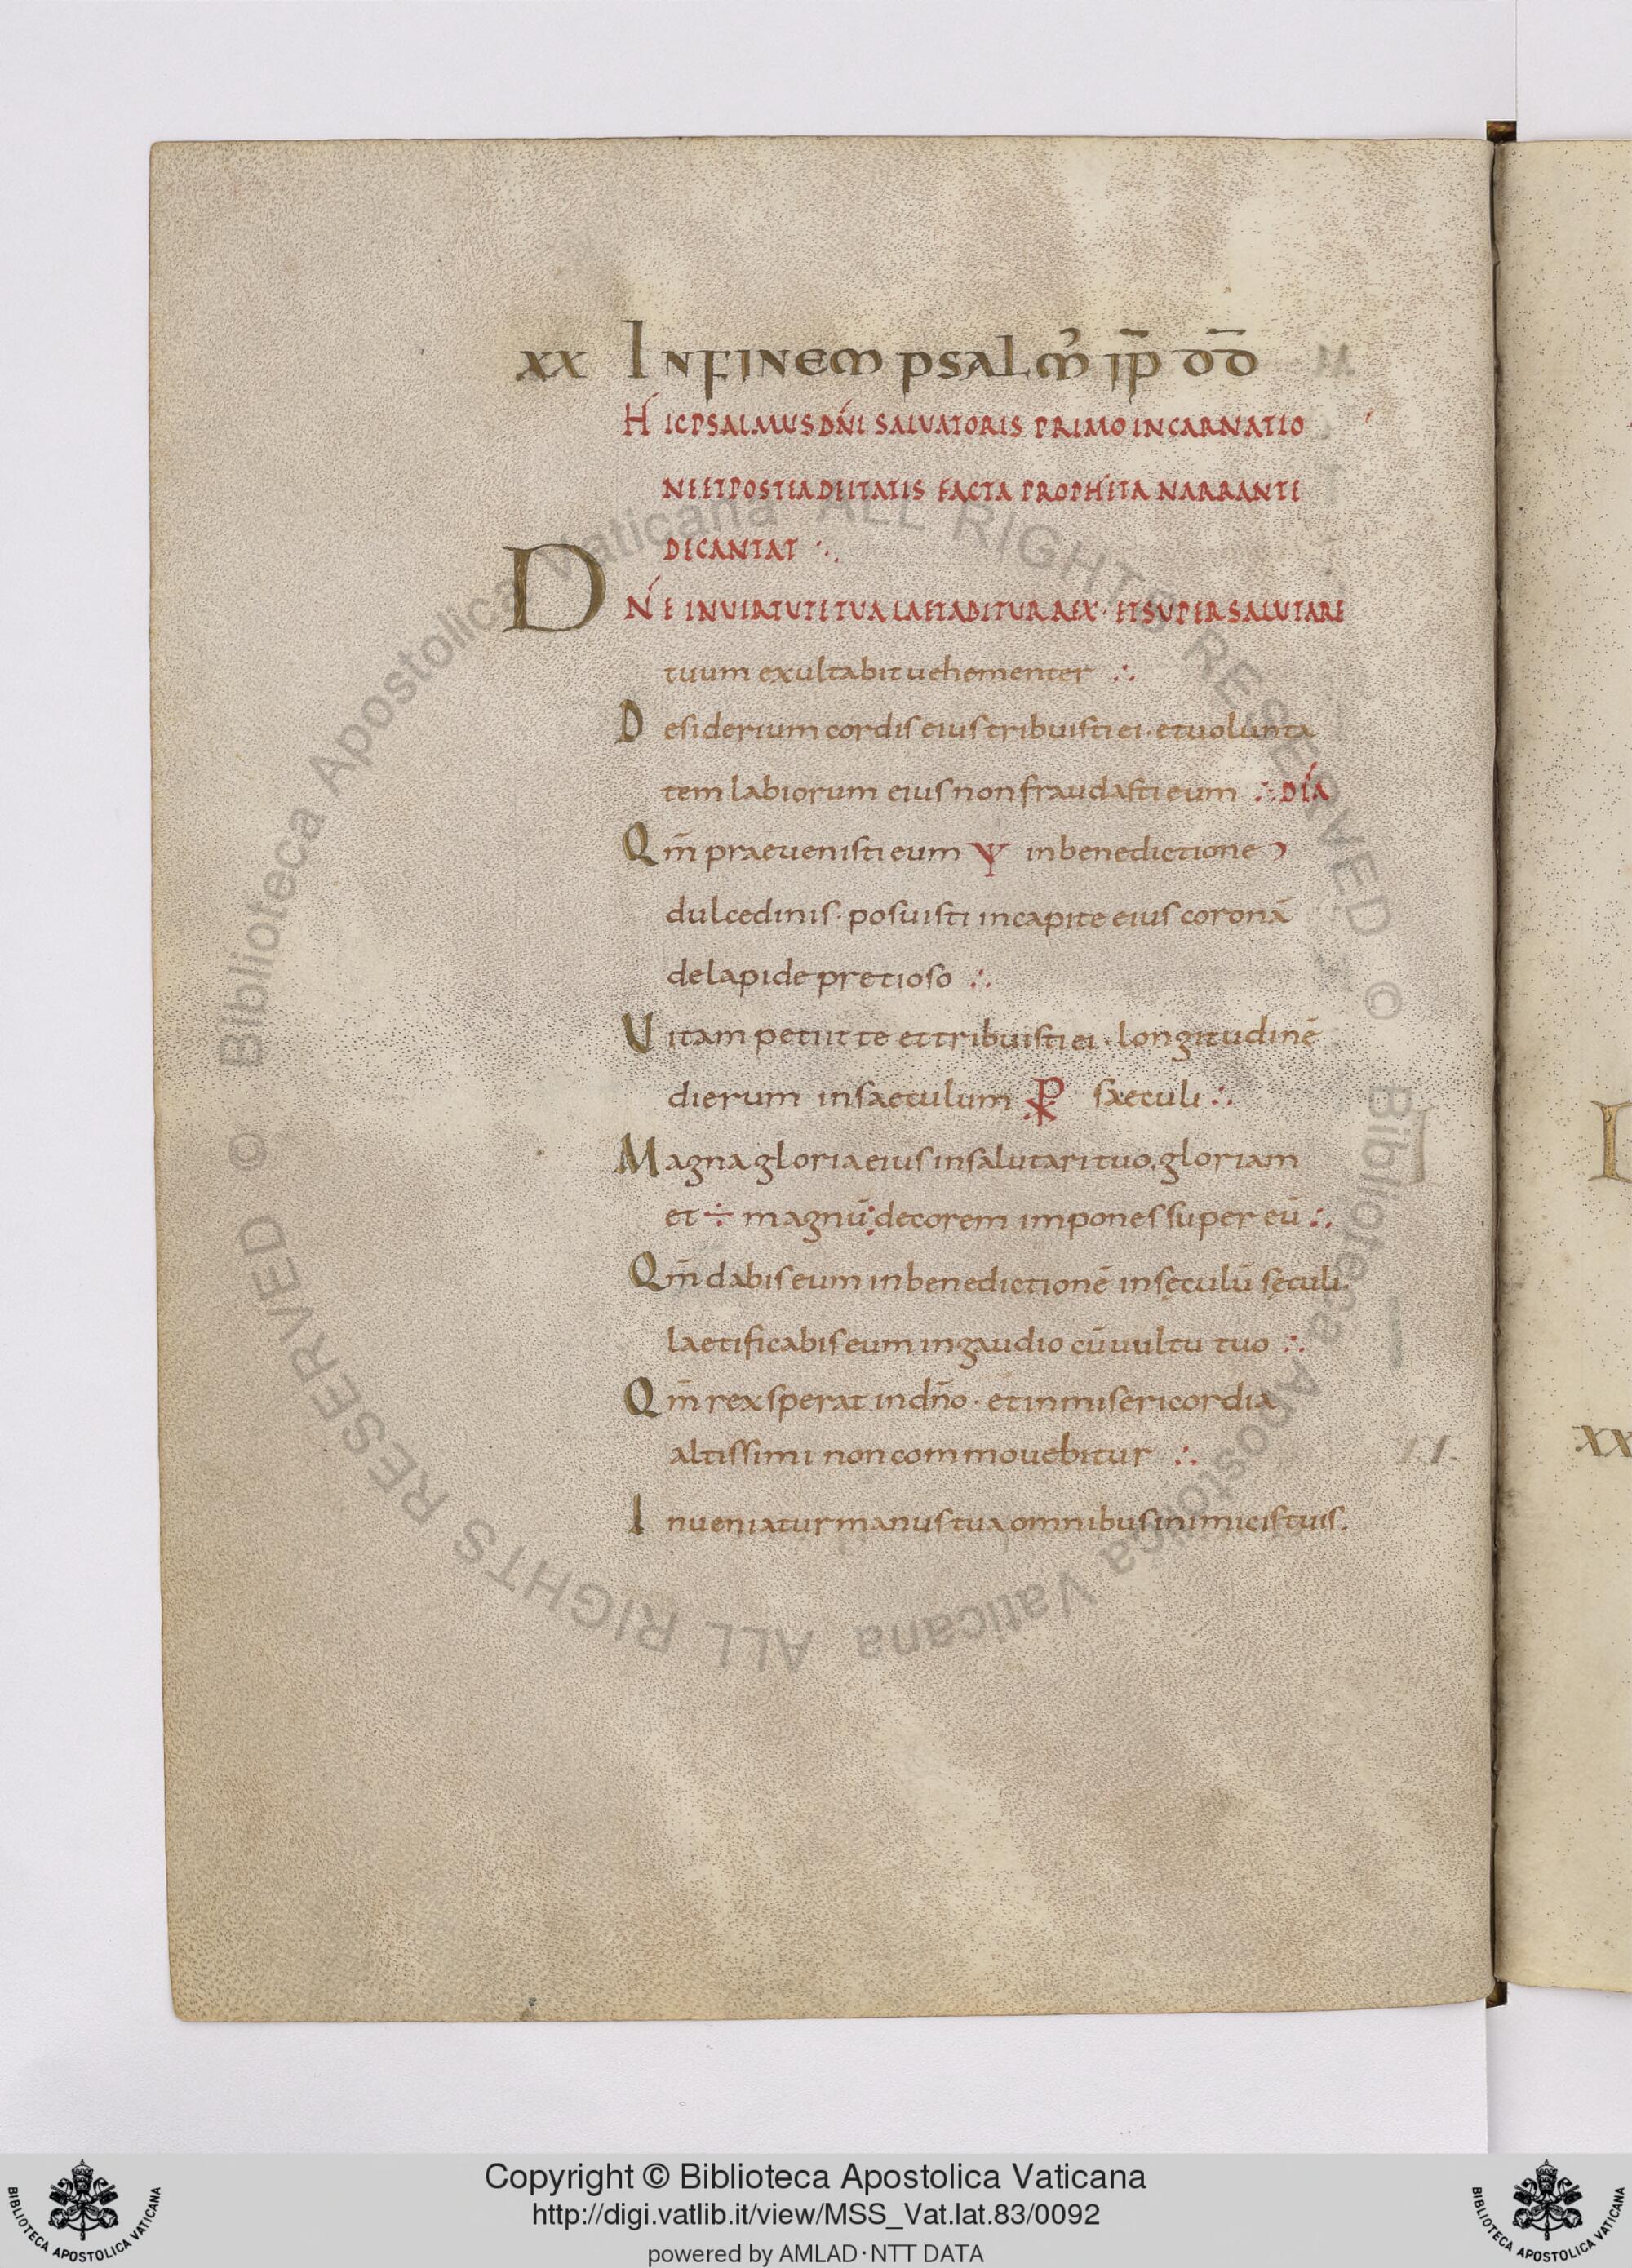 xx IN FINEM PSALM̉ IP̄ DD̄
HIC PSALMUS DN̄I SALVATORIS PRIMO INCARNATIO
NE ET POSTEA DEITATIS FACTA PROPHETA NARRANTE
DECANTAT ∴
DN̄E IN VIRTUTE TUA LAETABITUR REX · ET SUPER SALUTARE
tuum exultabit uehementer ∴
Desiderium cordis eius tribuisti ei · et uolunta
tem labiorum eius non fraudasti eum ∴ DIA
Qm̄ praeuenisti eum Ψ in benedictione
dulcedinis · posuisti in capite eius coronā
de lapide pretioso ∴
Vitam petiit te et tribuisti ei · longitudinē
dierum in saeculum ⳩ saeculi ∴
Magna gloria eius in salutari tuo. gloriam
et ÷ magnū: decorem impones super eū ∴
Qm̄ dabis eum in benedictionē in sęculū sęculi.
laetificabis eum in gaudio cū uultu tuo ∴
Qm̄ rex sperat in dn̄o · et in misericordia
altissimi non commouebitur ∴
Inueniatur manus tua omnibus inimicis tuis.
xx
© Biblioteca Apostolica Vaticana ALL RIGHTS RESERVED © Biblioteca Apostolica Vaticana ALL RIGHTS RESERVED
Copyright © Biblioteca Apostolica Vaticana
http://digi.vatlib.it/view/MSS_Vat.lat.83/0092
powered by AMLAD·NTT DATA
BIBLIOTECA APOSTOLICA VATICANA
BIBLIOTECA APOSTOLICA VATICANA